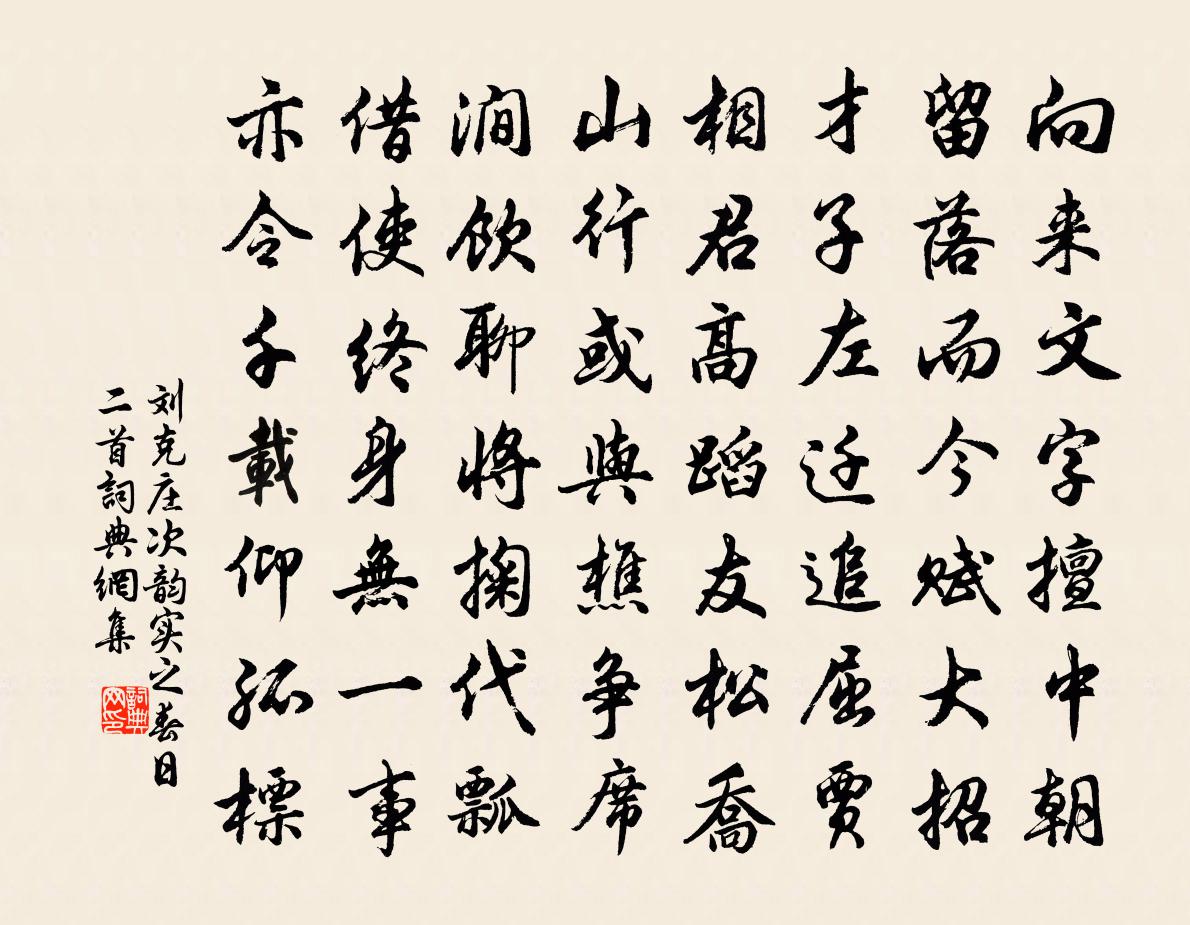 向来文字擅中朝
留落而今赋大招
才子左迁追屈贾
相君高蹈友松乔
山行或與樵争席
涧飲聊將掬代瓢
借使终身無一事
亦令千載仰孤標
刘克庄次韵实之春日
二首詞典網集
詞典
网印